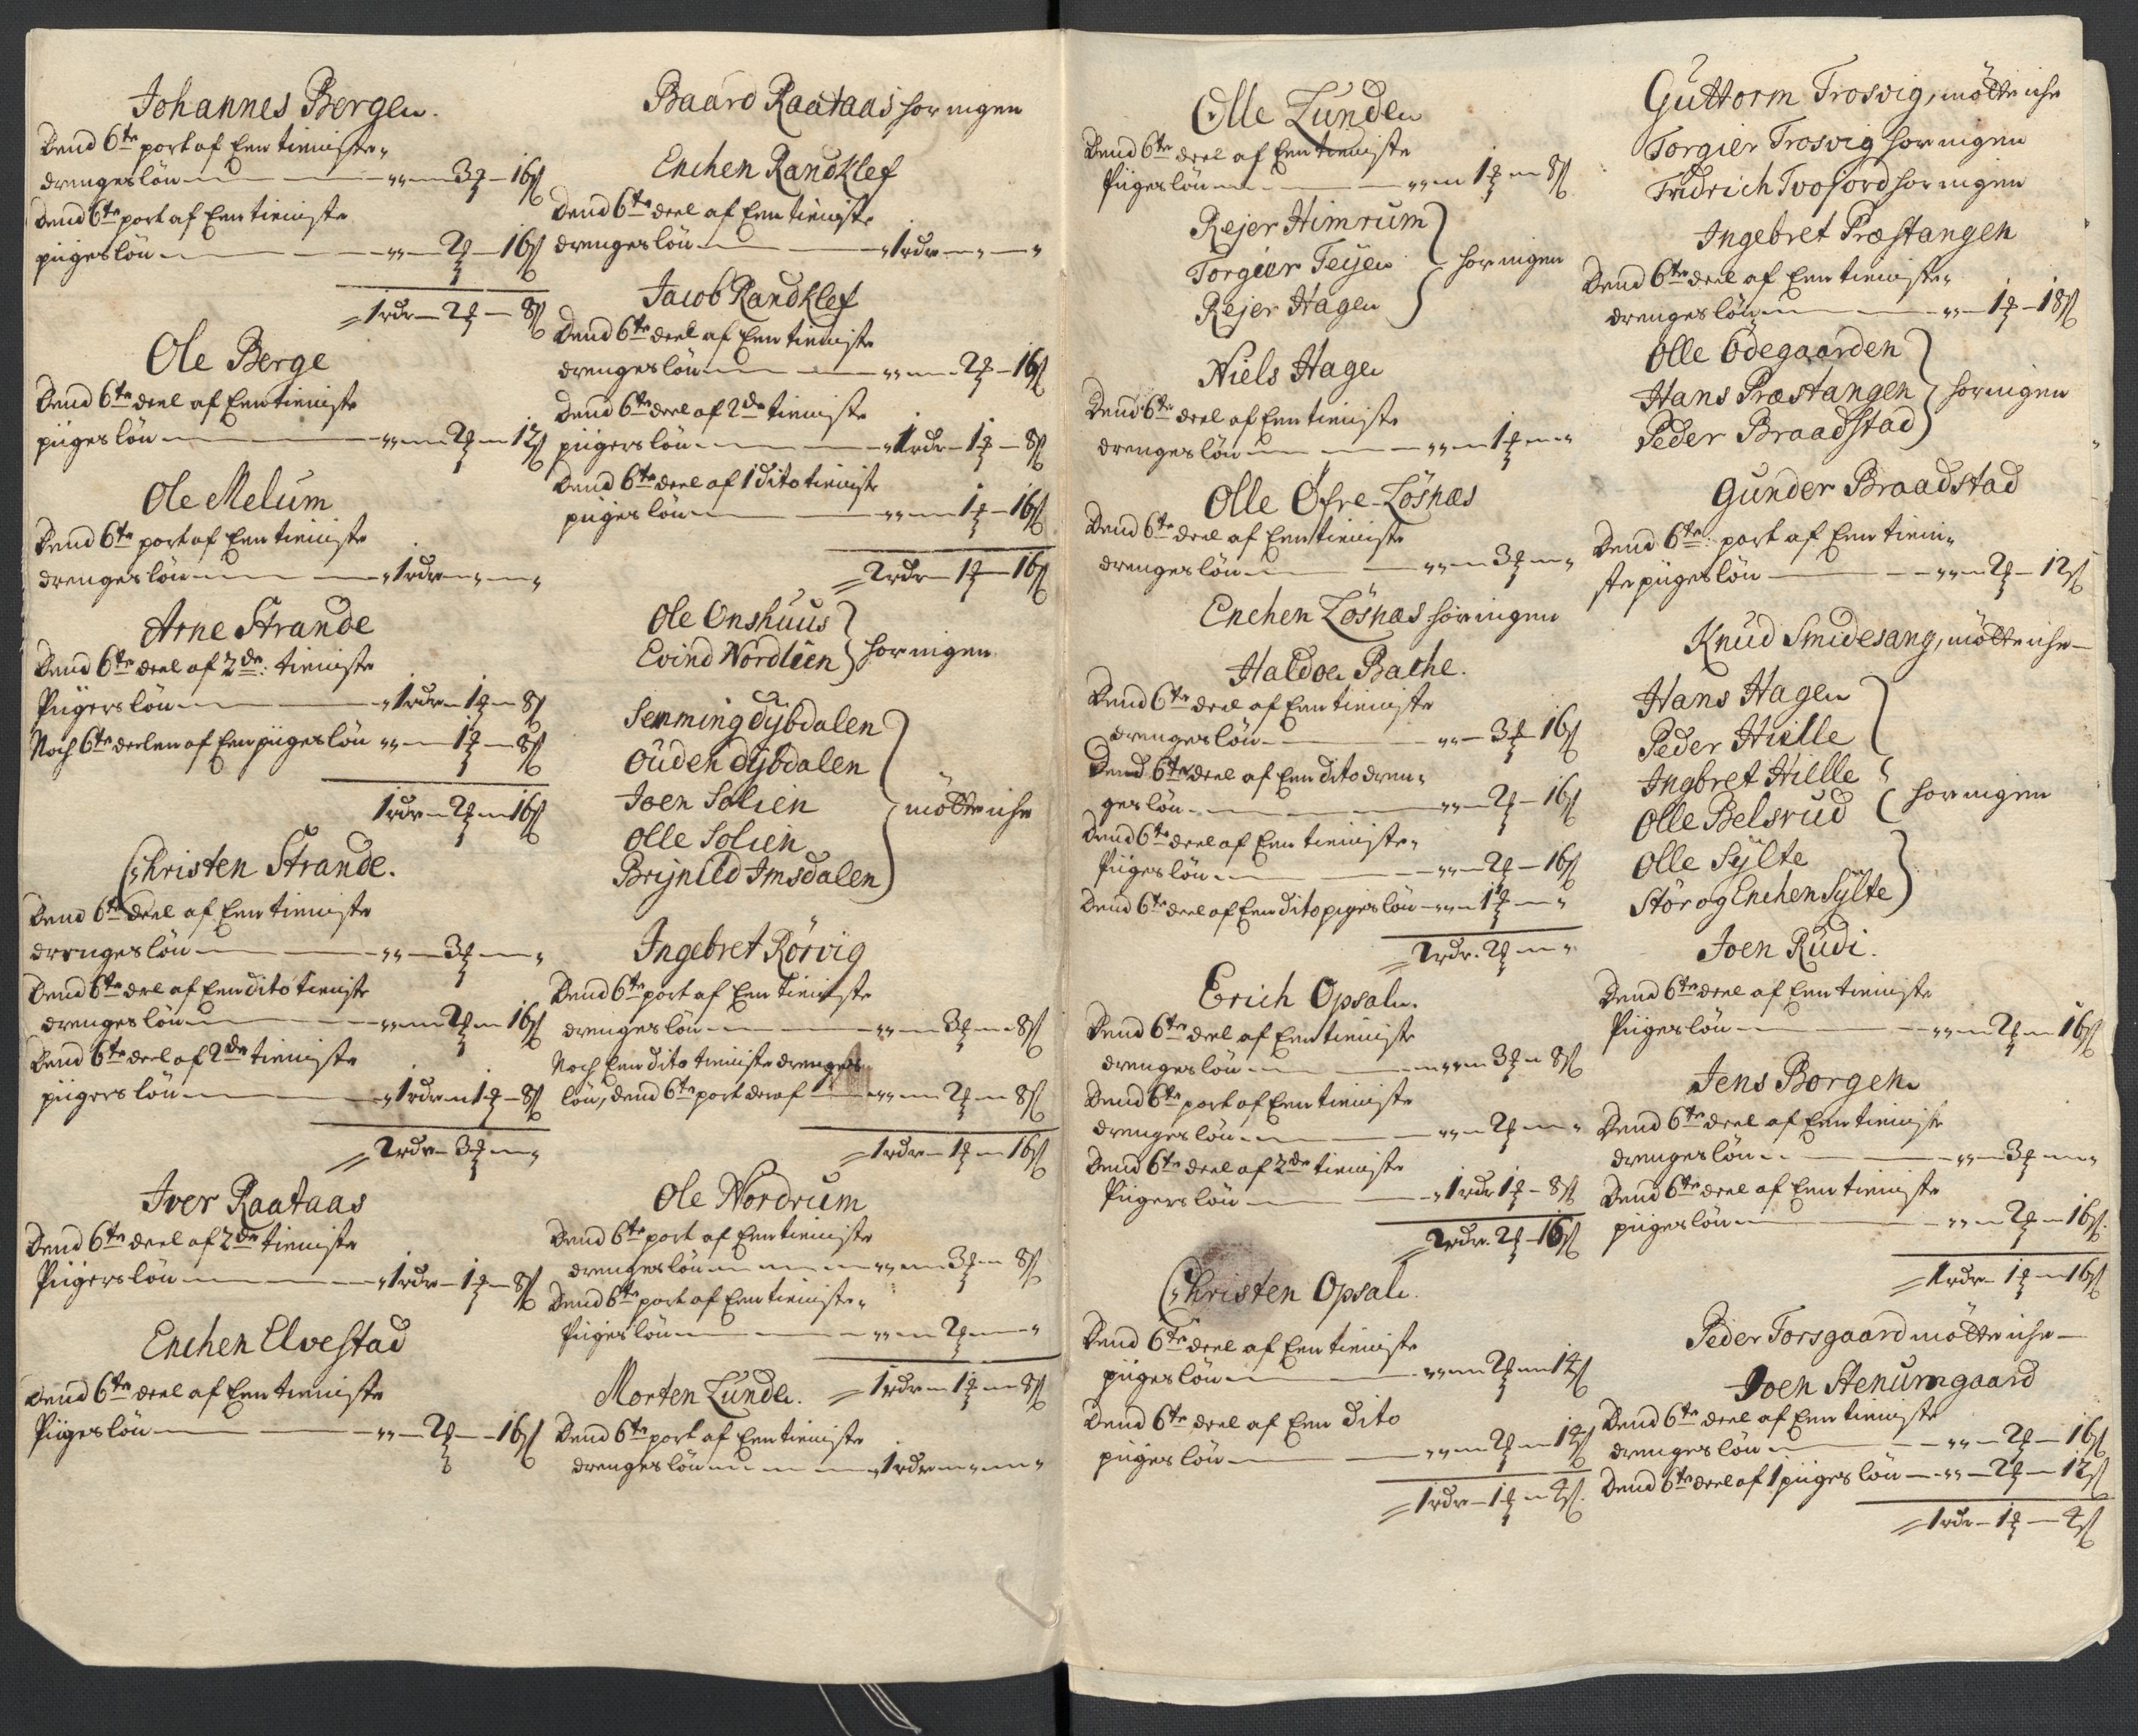 Johannes Bergen.
Dend 6te port af Een tieniste„
drenges lön — „„ — 3 ʒ — 16 ß
Dend 6te port af Een tieniste
piiges lön — „„ — 2 ʒ — 16 ß
1 rdr — 2 ʒ — 8 ß
Ole Berge
Dend 6te deel af Een tieniste
piiges lön — „„ — 2 ʒ — 12 ß
Ole Melum
Dend 6te port af Een tieniste
drenges lön — „ 1 rdr — „ — „
Arne Strande
Dend 6te deel af 2de: tieniste
Piigers lön — „ 1 rdr — 1 ʒ — 8 ß
Noch 6te deelen af Een piiges lön „„ — 1 ʒ — 8 ß
1 rdr — 2 ʒ — 16 ß
Christen Strande.
Dend 6te deel af Een tieniste
drenges lön — „„ — 3 ʒ — „
Dend 6te deel af Een dito tieniste
drenges lön — „„ — 2 ʒ — 16 ß
Dend 6te deel af 2de tieniste
piigers lön — „ 1 rdr — 1 ʒ — 8 ß
2 rdr — 3 ʒ — „
Iver Raataas
Dend 6te deel af 2de tieniste
Piigers lön — „ 1 rdr — 1 ʒ — 8 ß
Enchen Elvestad
Dend 6te deel af Een tieniste
Piiges lön — „„ — 2 ʒ — 16 ß
Baard Raataas har ingen
Enchen Randklef
Dend 6te deel af Een tieniste
drenges lön — „ 1 rdr — „ — „
Jacob Randklef
Dend 6te deel af Een tieniste
drenges lön — „„ — 2 ʒ — 16 ß
Dend 6te deel af 2de tieniste
piigers lön — „ 1 rdr — 1 ʒ — 8 ß
Dend 6te deel af 1 dito tieniste
piiges lön — „„ — 1 ʒ — 16 ß
2 rdr — 1 ʒ — 16 ß
Ole Onshuus
Evind Nordlien } har ingen
Semming dybdalen
Ouden dybdalen
Joen Solien
Olle Solien
Brynild Imsdalen } mötte iche
Ingebret Rörvig
Dend 6te port af Een tieniste
drenges lön — „„ — 3 ʒ — 8 ß
Noch Een dito tieniste drenges
lön, dend 6te port deraf — „„ — 2 ʒ — 8 ß
1 rdr — 1 ʒ — 16 ß
Ole Nordrum
Dend 6te port af Een tieniste
drenges lön — „„ — 3 ʒ — 8 ß
Dend 6te port af Een tieniste„
Piiges lön — „„ — 2 ʒ — „
1 rdr — 1 ʒ — 8 ß
Morten Lunde.
Dend 6te port af Een tieniste
drenges lön — „ 1 rdr — „ — „
Olle Lunden
Dend 6te deel af Een tieniste
Piiges lön — „„ — 1 ʒ — 8 ß
Rejer Himrum
Torgier Teijen
Rejer Hagen } har ingen
Niels Hagen
Dend 6te deel af Een tieniste
drenges lön — „„ — 1 ʒ — „
Olle Öfre-Lösnæs
Dend 6te deel af Een tieniste
drenges lön — „„ — 3 ʒ — „
Enchen Lösnæs har ingen
Haldoer Bache.
Dend 6te deel af Een tieniste
drenges lön — „„ — 3 ʒ — 16 ß
Dend 6te deel af Een dito dren„
ges lön — „„ — 2 ʒ — 16 ß
Dend 6te deel af Een tieniste„
Piiges lön — „„ — 2 ʒ — 16 ß
Dend 6te deel af Een dito piges lön „„ — 1 ʒ — „
2 rdr. 2 ʒ — „
Erich Opsalen.
Dend 6te deel af Een tieniste
drenges lön — „„ — 3 ʒ — 8 ß
Dend 6te port af Een tieniste
drenges lön — „„ — 2 ʒ — „
Dend 6te deel af 2de tieniste
Piigers lön — „ 1 rdr 1 ʒ — 8 ß
2 rdr. 2 ʒ — 16 ß
Christen Opsalen.
Dend 6te deel af Een tieniste
piiges lön — „„ — 2 ʒ — 14 ß
Dend 6te deel af Een dito
piiges lön — „„ — 2 ʒ — 14 ß
1 rdr — 1 ʒ — 4 ß.
Guttorm Trosvig, mötte iche
Torgier Trosvig har ingen
Fridrich Tvofiord har ingen
Ingebret Præstangen
Dend 6te deel af Een tieniste„
drenges lön — „„ — 1 ʒ — 18 ß
Olle Ödegaarden
Hans Præstangen
Peder Braadstad } har ingen
Gunder Braadstad
Dend 6te: port af Een tieni„
ste piiges lön — „„ — 2 ʒ — 12 ß
Knud Smidesang, mötte iche —
Hans Hagen
Peder Hielle
Ingbret Hielle
Olle Belsrud
Olle Sylte
Stör og Enchen Sylte } har ingen
Joen Rudi.
Dend 6te deel af Een tieniste
Piiges lön — „„ — 2 ʒ — 16 ß
Jens Borgen
Dend 6te deel af Een tieniste
drenges lön — „„ — 3 ʒ — „
Dend 6te deel af Een tieniste
piiges lön — „„ — 2 ʒ — 16 ß.
1 rdr — 1 ʒ — 16 ß
Peder Torsgaard mötte iche —
Joen Stenumgaard
Dend 6te deel af Een tieniste
drenges lön — „„ — 2 ʒ — 16 ß
Dend 6te deel af 1 piiges lön — „„ — 2 ʒ — 12 ß
1 rdr — 1 ʒ — 4 ß